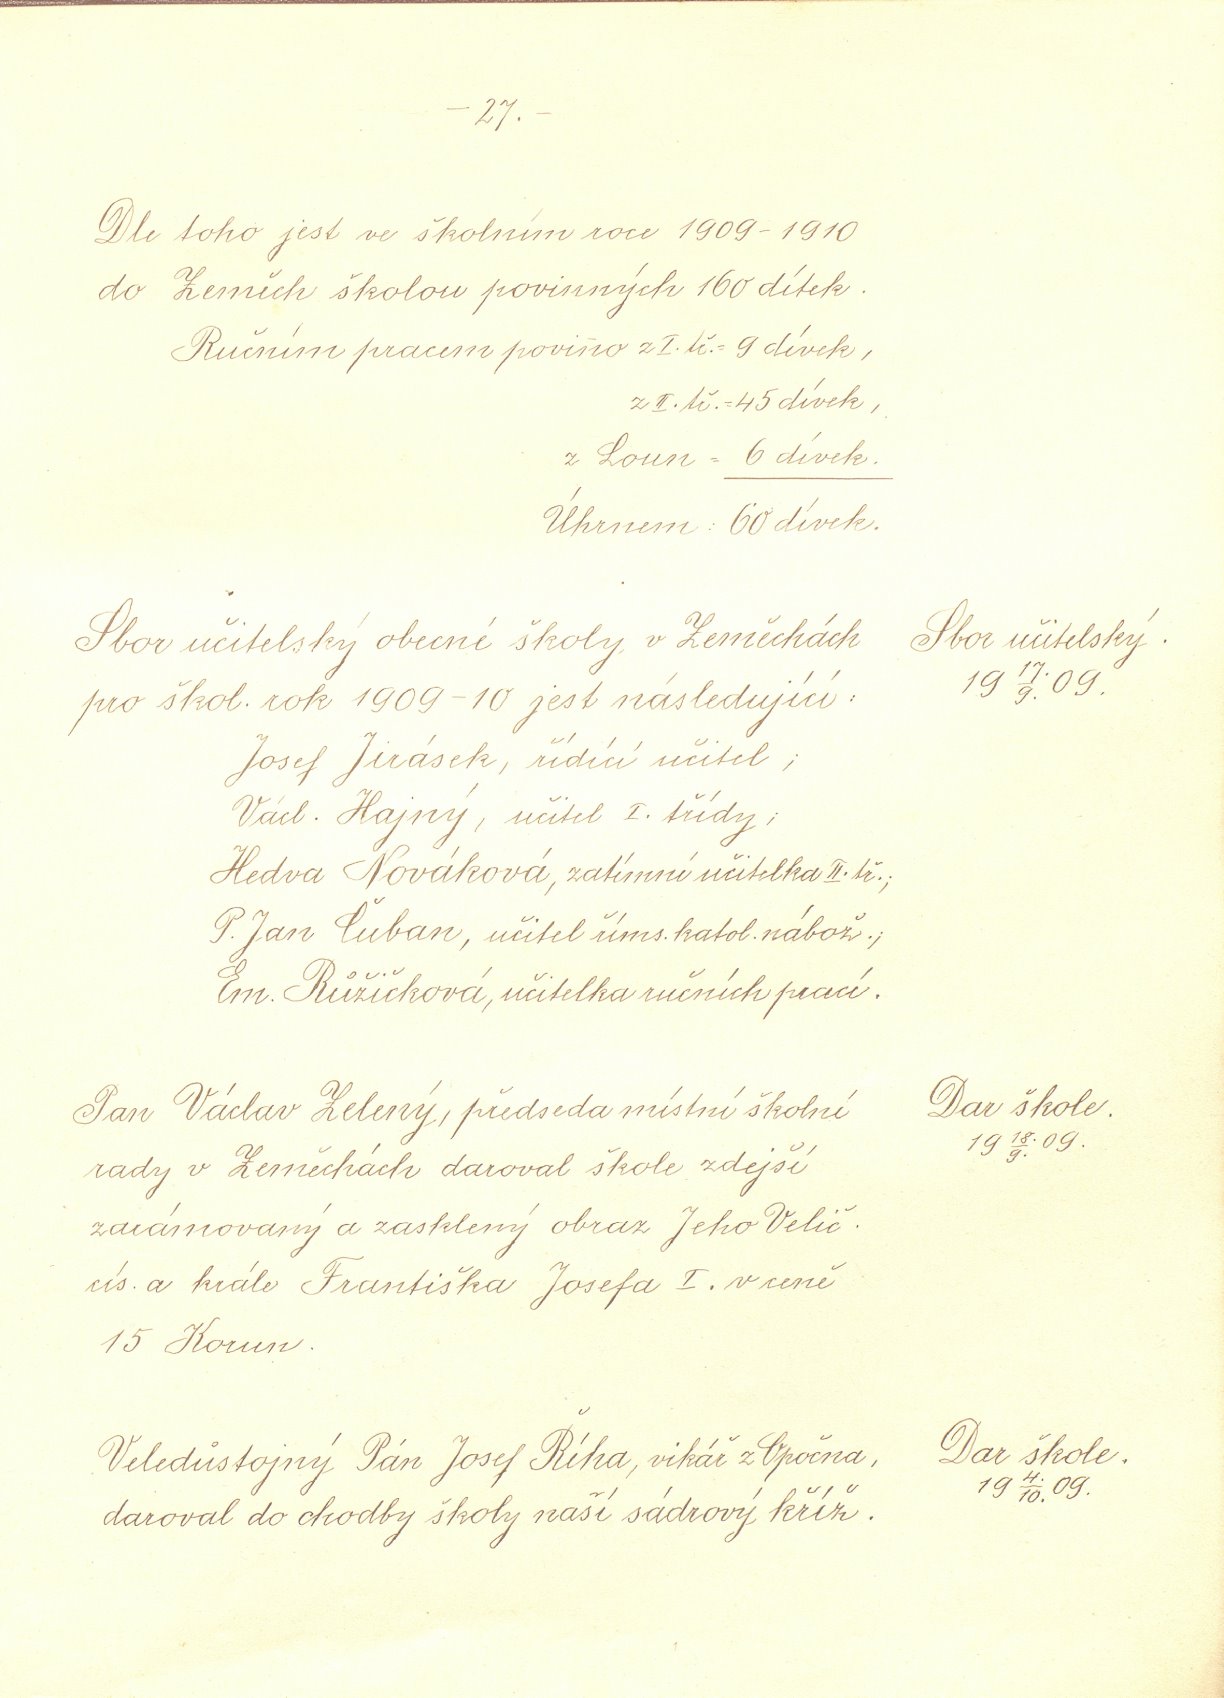 – 27. –
Dle toho jest ve školním roce 1909–1910
do Zeměch školou povinných 160 dítek.
Ručním pracem poviňo z I. tř. = 9 dívek,
z II. tř. = 45 dívek,
z Loun = 6 dívek.
Úhrnem : 60 dívek.
Sbor učitelský obecné školy v Zeměchách
pro škol. rok 1909–10 jest následující:
Sbor učitelský.
19 17./9. 09.
Josef Jirásek, řídící učitel;
Václ. Hajný, učitel I. třídy;
Hedva Nováková, zatímní učitelka II. tř.;
P. Jan Čuban, učitel říms. katol. nábož.;
Em. Růžičková, učitelka ručních prací.
Pan Václav Zelený, předseda místní školní
rady v Zeměchách daroval škole zdejší
zarámovaný a zasklený obraz Jeho Velič.
cís. a krále Františka Josefa I. v ceně
15 Korun.
Dar škole.
19 18./9. 09.
Veledůstojný Pán Josef Říha, vikář z Opočna,
daroval do chodby školy naší sádrový kříž.
Dar škole.
19 4./10. 09.